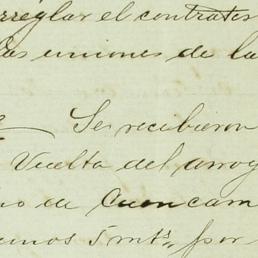 arreglar el contrato
las uniones de la
Se recubieron
Vuelta del arroy
no de Cuencam
emos 5 mts, por